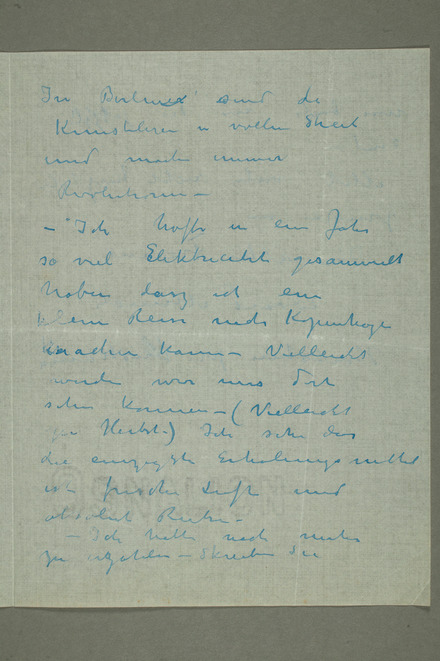 In Berlin sind die
Künstleren in vollen Streit
und machen immer
Revolutionen –
– Ich hoffe in ein Jahr
so viel Elektricität gesammelt
haben dasz ich ein
klein Reise nach Kopenhagen
machen kann – Vielleicht
werden wir uns dort
sehn können – (Vielleicht
zu Herbst) Ich sehe das
die einzigste Erholungsmittel
ist frische Luft und
absolut Ruhe –
– Ich hätte noch mehr
zu erzählen – Skreiben Sie